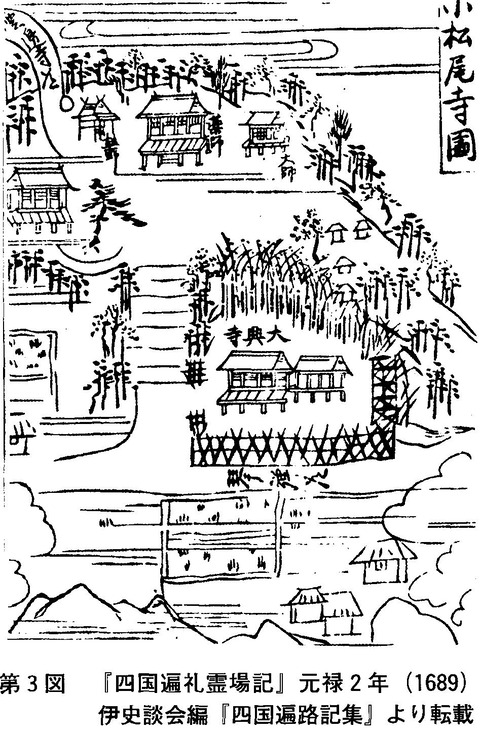 小松尾寺圖
薬師
大師
大興寺
第3図 『四国遍礼霊場記』元禄2年(1689)
伊史談会編『四国遍路記集』より転載